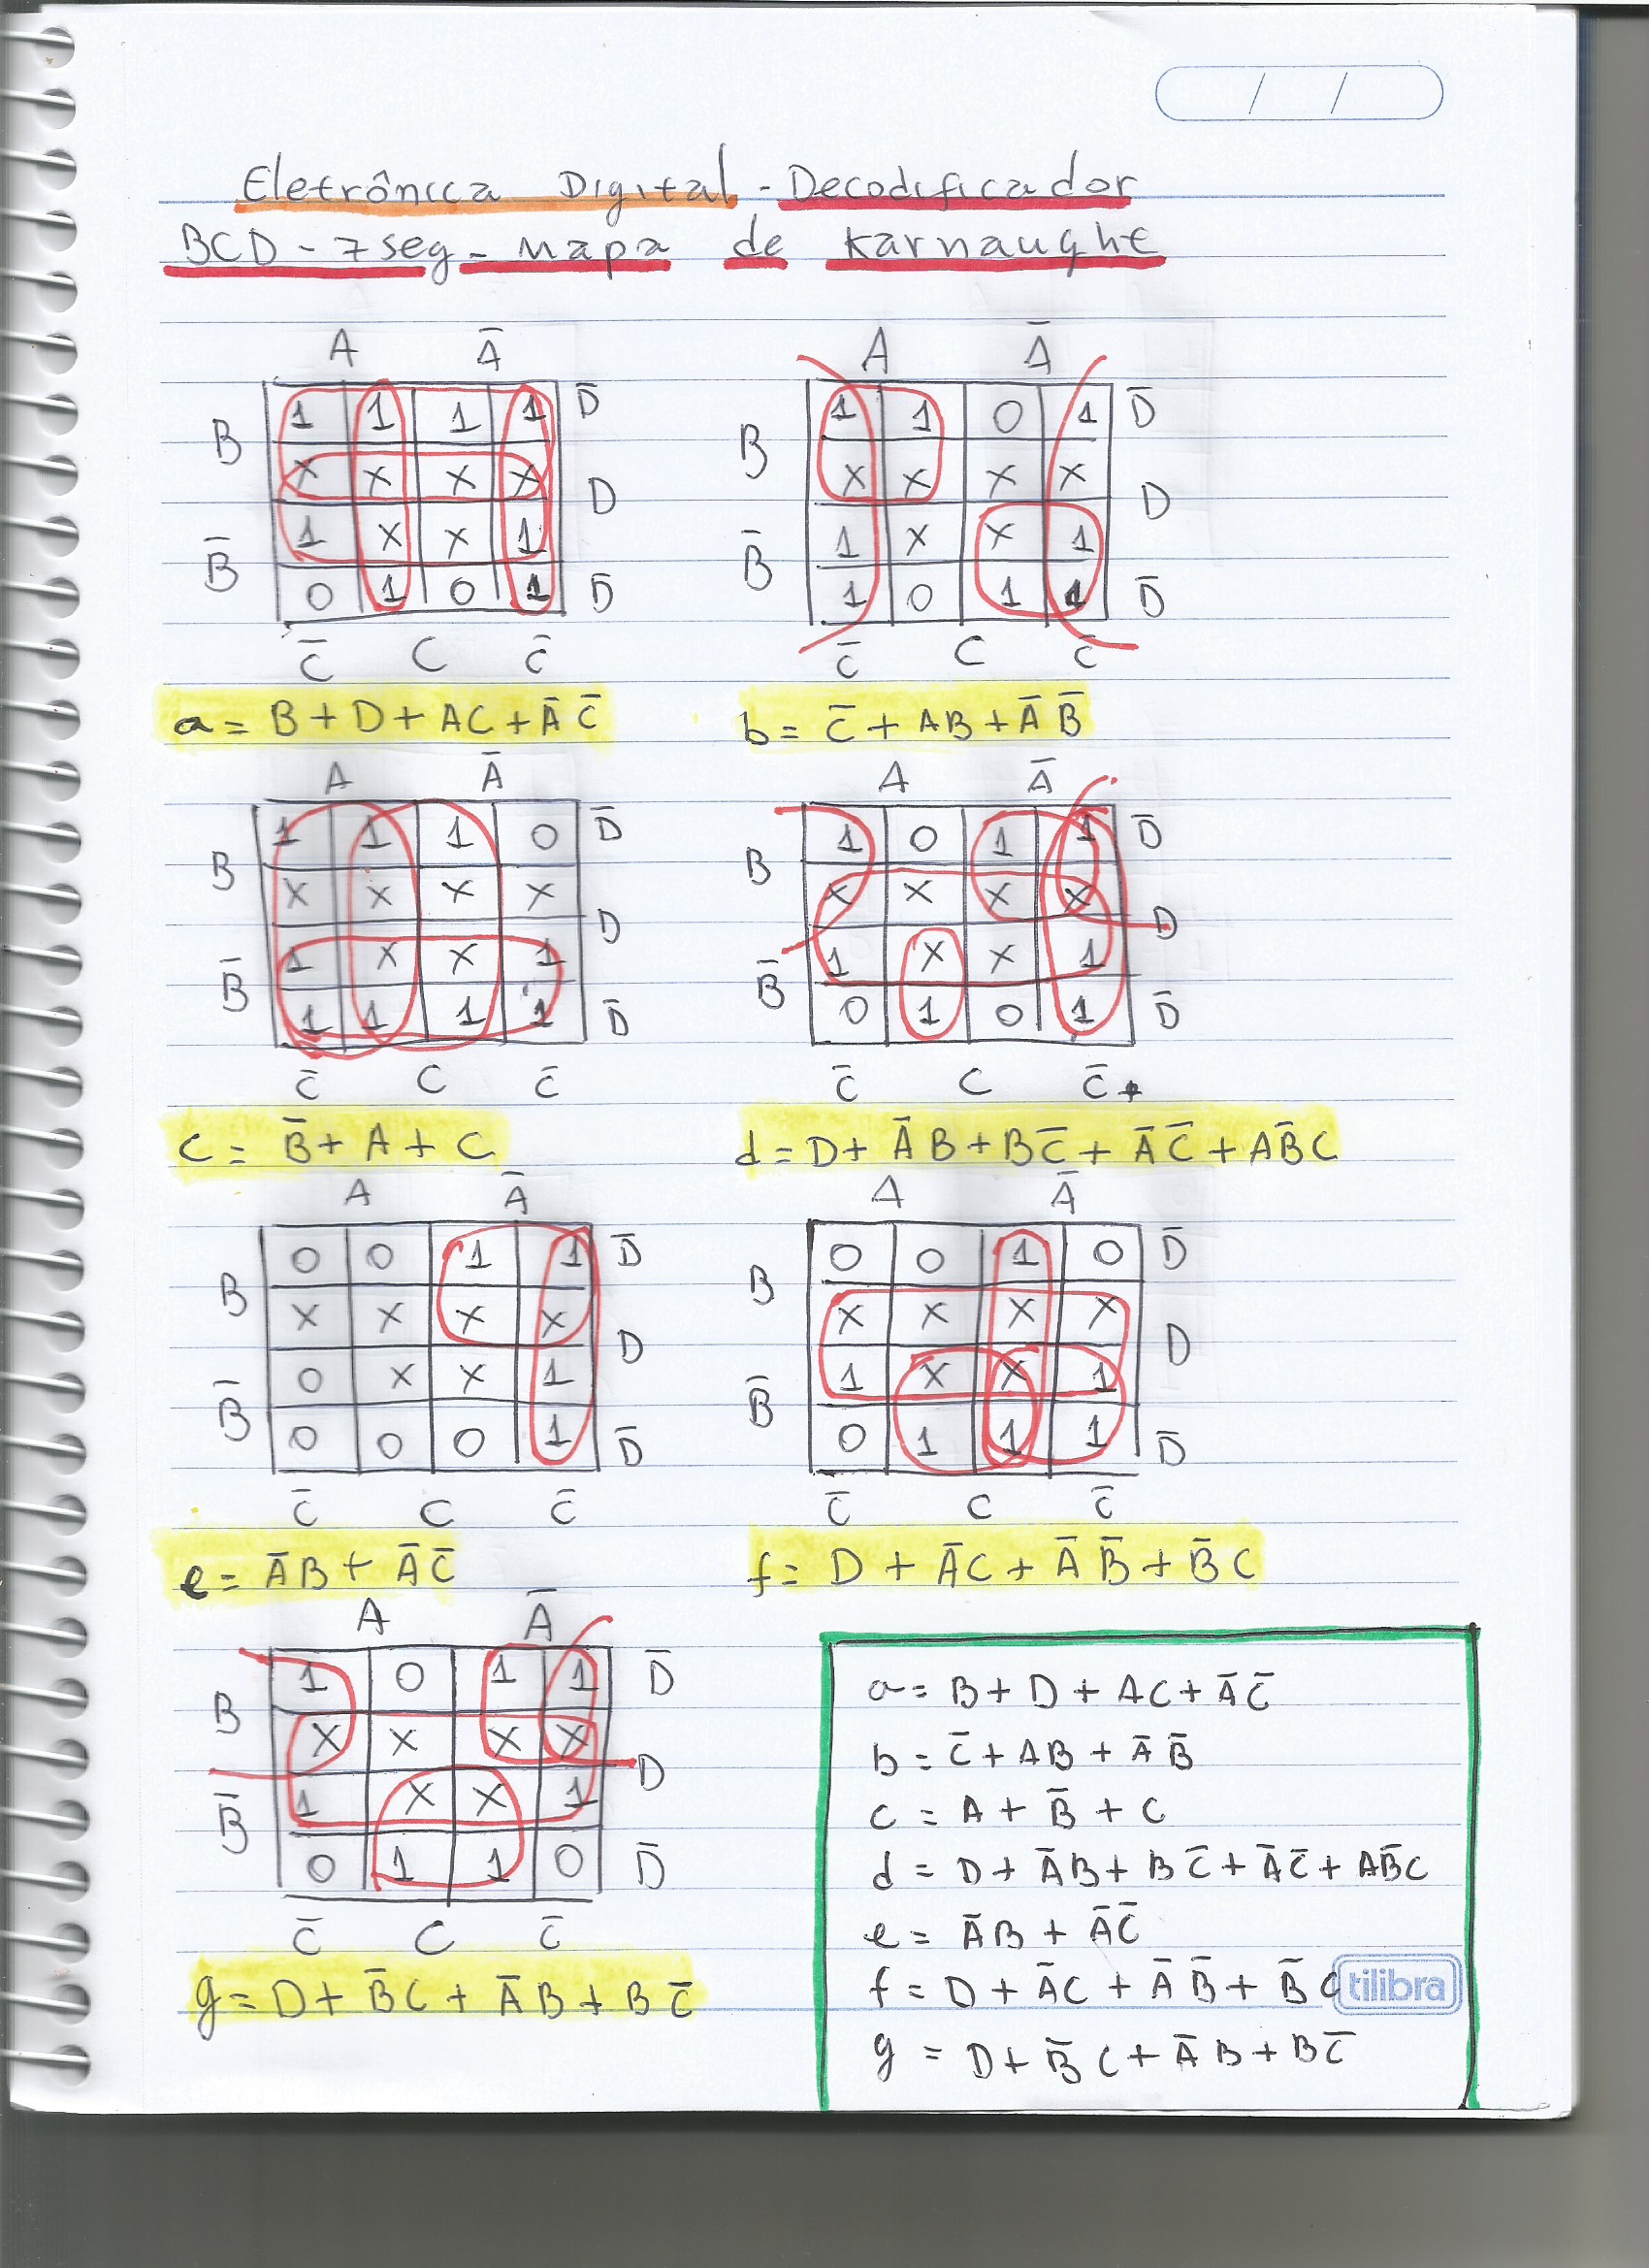 Eletrônica Digital - Decodificador
BCD - 7 seg - Mapa de Karnaughe
A Ā
B 1 1 1 1 D̄
X X X X D
B̄ 1 X X 1
0 1 0 1 D̄
C̄ C C̄
a = B + D + AC + Ā C̄
A Ā
B 1 1 0 1 D̄
X X X X D
B̄ 1 X X 1
1 0 1 1 D̄
C̄ C C̄
b = C̄ + AB + Ā B̄
A Ā
B 1 1 1 0 D̄
X X X X D
B̄ 1 X X 1
1 1 1 1 D̄
C̄ C C̄
c = B̄ + A + C
A Ā
B 1 0 1 1 D̄
X X X X D
B̄ 1 X X 1
0 1 0 1 D̄
C̄ C C̄
d = D + Ā B + B C̄ + Ā C̄ + A B̄ C
A Ā
B 0 0 1 1 D̄
X X X X D
B̄ 0 X X 1
0 0 0 1 D̄
C̄ C C̄
e = Ā B + Ā C̄
A Ā
B 0 0 1 0 D̄
X X X X D
B̄ 1 X X 1
0 1 1 1 D̄
C̄ C C̄
f = D + Ā C + Ā B̄ + B̄ C
A Ā
B 1 0 1 1 D̄
X X X X D
B̄ 1 X X 1
0 1 1 0 D̄
C̄ C C̄
g = D + B̄ C + Ā B + B C̄
a = B + D + AC + Ā C̄
b = C̄ + AB + Ā B̄
c = A + B̄ + C
d = D + Ā B + B C̄ + Ā C̄ + A B̄ C
e = Ā B + Ā C̄
f = D + Ā C + Ā B̄ + B̄ C
tilibra
g = D + B̄ C + Ā B + B C̄